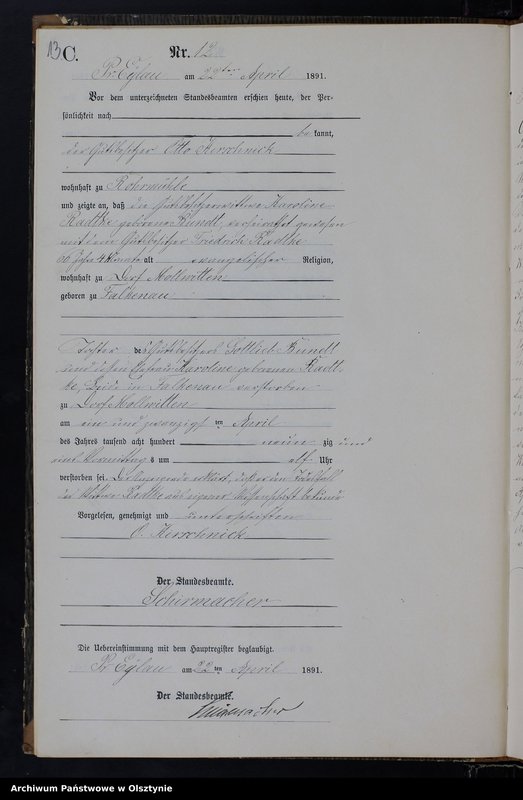 13
C.
Nr. 12
Pr. Eylau am 22ten April 1891.
Vor dem unterzeichneten Standesbeamten erschien heute, der Per-
sönlichkeit nach
be kannt,
der Gutsbesitzer Otto Kerschneck
wohnhaft zu Rohrmühle
und zeigte an, daß die Gutsbesitzerwittwe Karoline
Radtke geborene Kundt, verheirathet gewesen
mit dem Gutsbesitzer Friedrich Radtke
66 Jahr 4 Monate alt evangelischer Religion,
wohnhaft zu Dorf Mollwitten
geboren zu Falkenau
Tochter des Gutsbesitzers Gottlieb Kundt
und dessen Ehefrau Karoline geborenen Radt-
ke, Beide in Falkenau verstorben
zu Dorf Mollwitten
am ein und zwanzigsten April
des Jahres tausend acht hundert neun zig und
eins Vormittags um elf Uhr
verstorben sei. Der Anzeigende erklärt, daß er den Todesfall
der Wittwe Radtke aus eigener Wissenschaft bekunde
Vorgelesen, genehmigt und unterschrieben
O. Kerschneck
Der Standesbeamte.
Schirmacher
Die Uebereinstimmung mit dem Hauptregister beglaubigt.
Pr Eylau am 22ten April 1891.
Der Standesbeamte.
Schirmacher
Archiwum Państwowe w Olsztynie